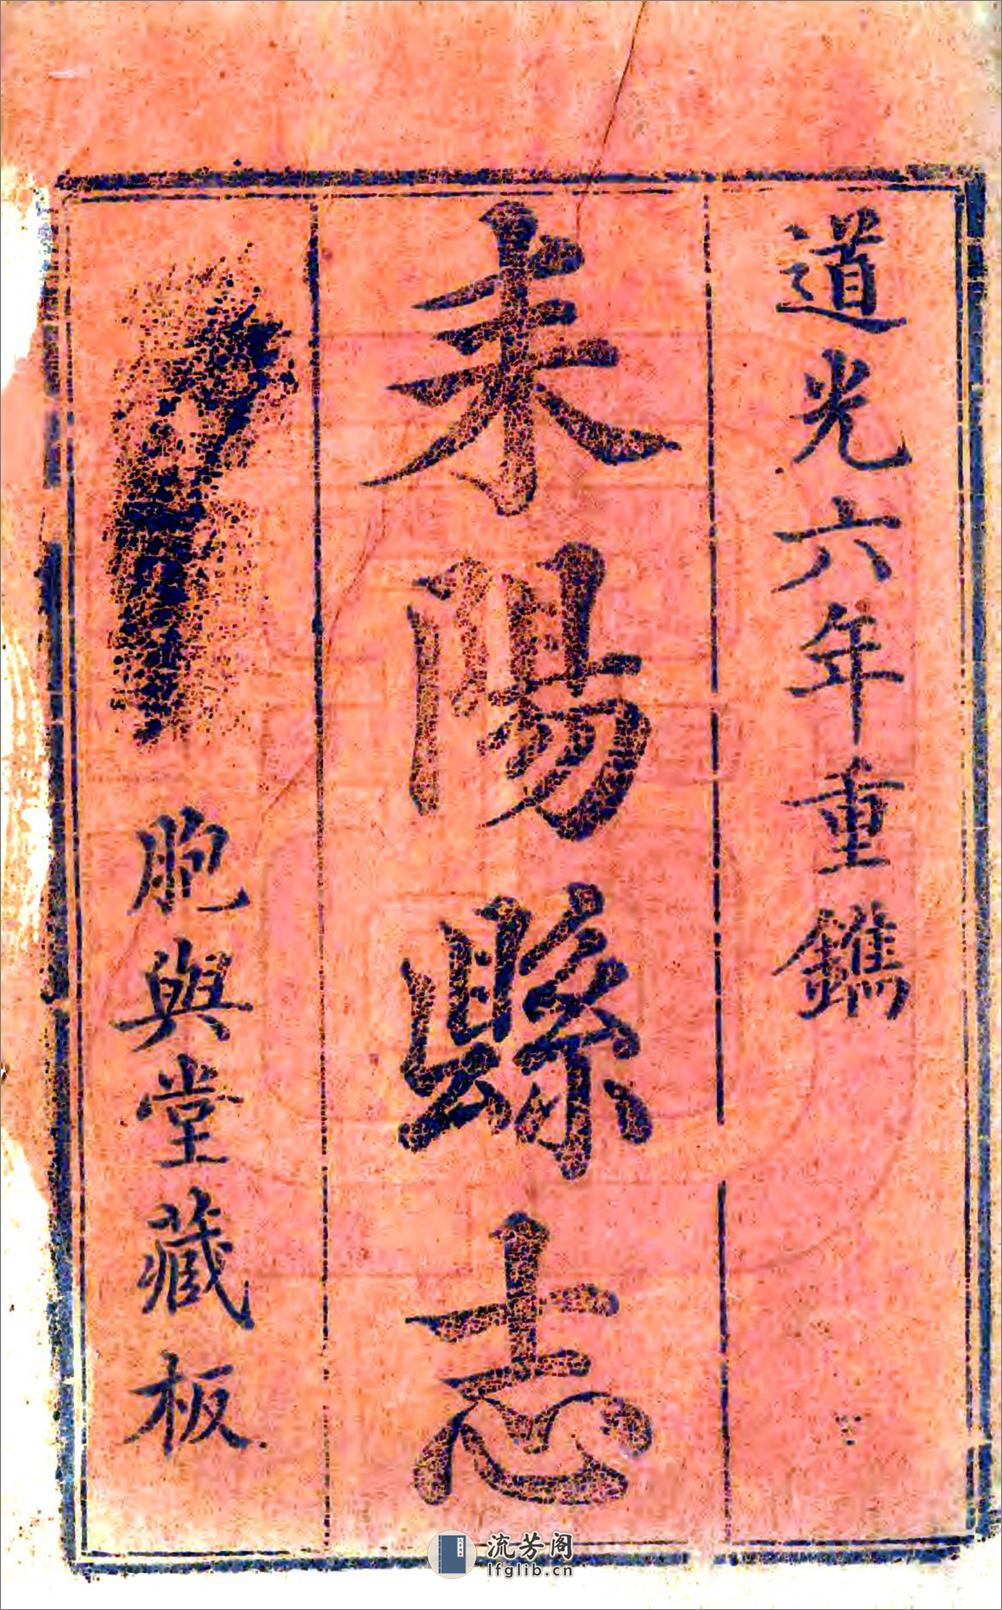 道光六年重鐫
耒陽縣志
胞與堂藏板
流芳阁
lfglib.cn